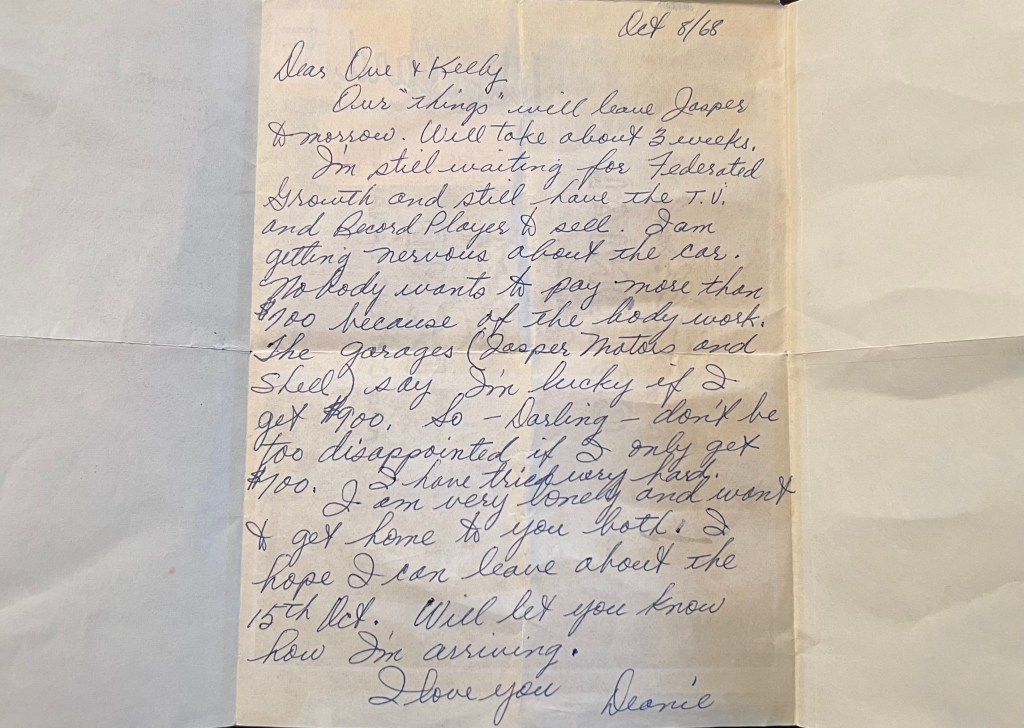 Oct 8/68
Dear Ove & Kelly
Our "things" will leave Jasper
tomorrow. Will take about 3 weeks.
I'm still waiting for Federated
Growth and still have the T.V.
and Record Player to sell. I am
getting nervous about the car.
Nobody wants to pay more than
$700 because of the body work.
The garages (Jasper Motors and
Shell) say I'm lucky if I
get $900. So - Darling - don't be
too disappointed if I only get
$700. I have tried very hard.
I am very lonely and want
to get home to you both. I
hope I can leave about the
15th Oct. Will let you know
how I'm arriving.
I love you Deanie